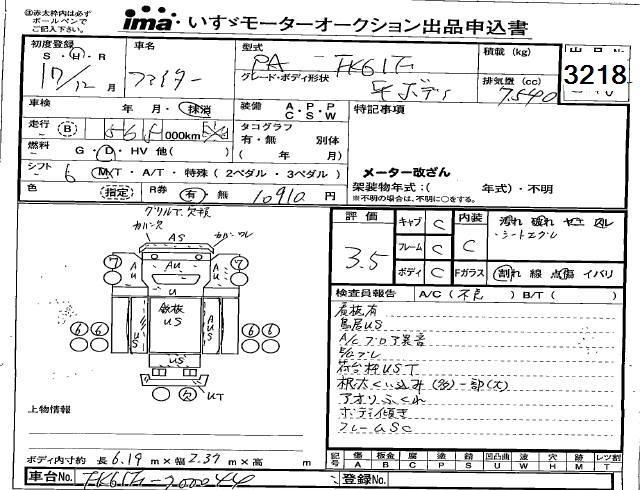 ㊟赤太枠内は必ず
ボールペンで
ご記入下さい。
ima・いすゞモーターオークション出品申込書
初度登録 車名 型式 積載 (kg) 出品No.
S・H・R 17/12月 ファイター PA- FK61F 3218
グレード・ボディ形状 平ボディ 排気量 (cc) 7,540
車検 年・月・抹消 装備 A・P・P C・S・W 特記事項
走行 B 000km タコグラフ 有・無 別体
燃料 G・D・HV 他( ) ( 年 月)
シフト 6 M/T・A/T・特殊 (2ペダル・3ペダル) メーター改ざん
色 指定 R券 有・無 10910円 架装物年式:( 年式)・不明
※不明の場合は、不明に○をする。
グリルフ欠損
カバー欠 AS カバーワレ
評価 3.5 キャブ C 内装 C 汚れ 破れ ヤニ スレ
・シートエグレ
フレーム C
ボディ C Fガラス 割れ 線 点傷 イバリ
7 AU AU AU 7
U
鉄板
US US AUS
6 6 6 6
US
欠 UT
検査員報告 A/C (不良) B/T ( )
鳥居US
A/Cブロア異音
荷台枠UST
根太くい込み(多)一部(大)
アオリふくれ
ボディ傾き
フレームSC
上物情報
ボディ内寸約 長 6.19 m×幅 2.37 m×高 m
記号 傷 A 板金 B 腐 C 塗 P 錆 S 凹凸曲 U 波 W 穴 H 跡 M レツ割 T
車台No. FK61F-700044 登録No.